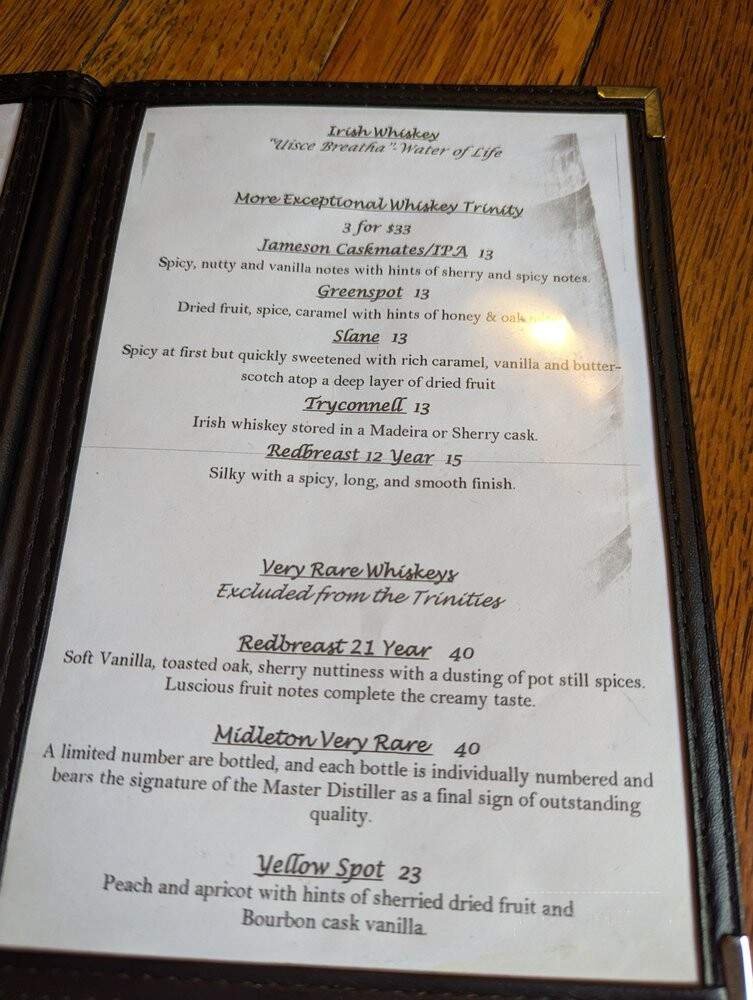 Irish Whiskey
"Uisce Breatha"- Water of Life
More Exceptional Whiskey Trinity
3 for $33
Jameson Caskmates/IPA 13
Spicy, nutty and vanilla notes with hints of sherry and spicy notes.
Greenspot 13
Dried fruit, spice, caramel with hints of honey & oak
Slane 13
Spicy at first but quickly sweetened with rich caramel, vanilla and butter-
scotch atop a deep layer of dried fruit
Tryconnell 13
Irish whiskey stored in a Madeira or Sherry cask.
Redbreast 12 Year 15
Silky with a spicy, long, and smooth finish.
Very Rare Whiskeys
Excluded from the Trinities
Redbreast 21 Year 40
Soft Vanilla, toasted oak, sherry nuttiness with a dusting of pot still spices.
Luscious fruit notes complete the creamy taste.
Midleton Very Rare 40
A limited number are bottled, and each bottle is individually numbered and
bears the signature of the Master Distiller as a final sign of outstanding
quality.
Yellow Spot 23
Peach and apricot with hints of sherried dried fruit and
Bourbon cask vanilla